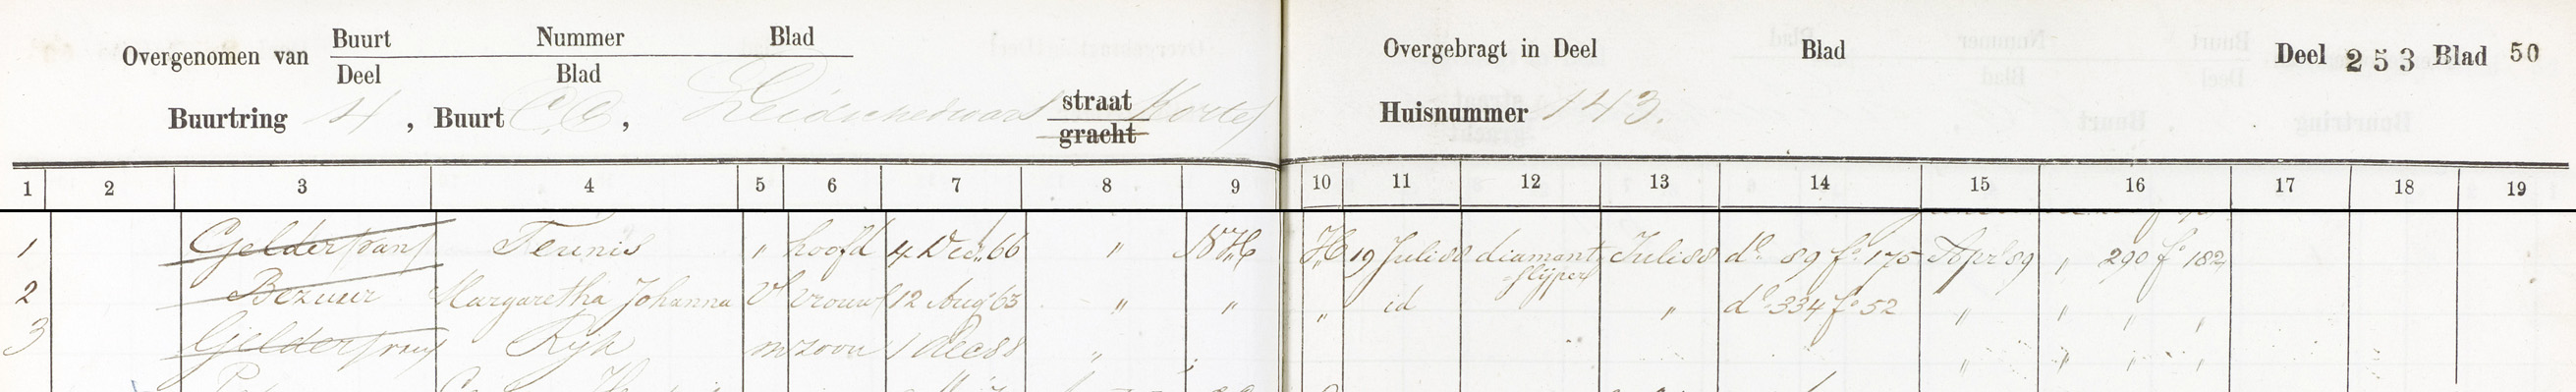 Overgenomen van Buurt Nummer Blad
Deel Blad
Overgebragt in Deel Blad Deel 253 Blad 50
Buurtring 4, Buurt CC, Leidschedwars straat Korte
gracht
Huisnummer 143.
1 2 3 4 5 6 7 8 9 10 11 12 13 14 15 16 17 18 19
1 Gelder (van) Teunis " hoofd 4 Dec. 66 " NH H 19 Juli 88 diamant Juli 88 do. 89 fo. 175 Apr 89 " 290 fo 182
slijper
2 Bezuur Margaretha Johanna V vrouw 12 Aug 63 " " " id " do. 334 fo. 52 " " " "
3 Gelder (van) Rijk m zoon 1 Dec 88 " " " " " "